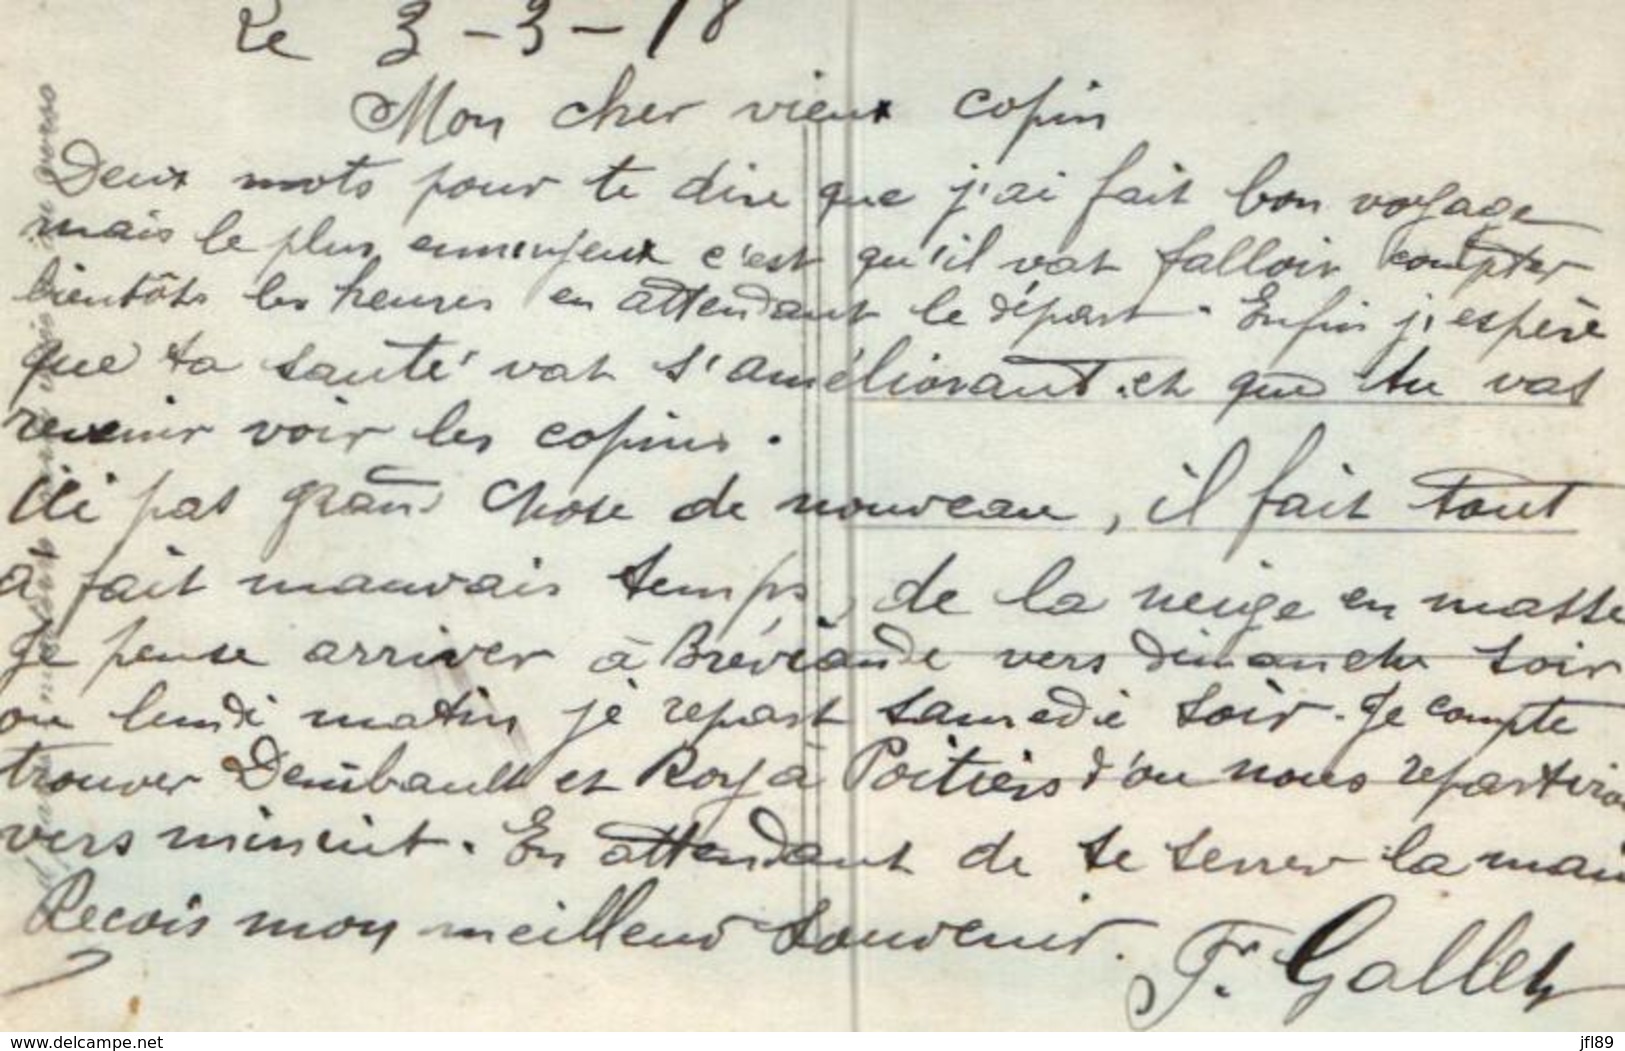 Le 3-3-18
Mon cher vieux copin
Deux mots pour te dire que j'ai fait bon voyage
mais le plus ennuyeux c'est qu'il vat falloir compter
bientôts les heures en attendant le départ. Enfin j'espère
que ta santé vat s'améliorant et que tu vas
revenir voir les copins.
Ici pas grand chose de nouveau, il fait tout
a fait mauvais temps, de la neige en masse
Je pense arriver à Bréviande vers dimanche soir
ou lundi matin je repart samedie soir. Je compte
trouver et Roy à Poitiers d'ou nous repartiron
vers minuit. En attendant de te serrer la main
Recois mon meilleur souvenir.
F. Gallet
www.delcampe.net
jfl89